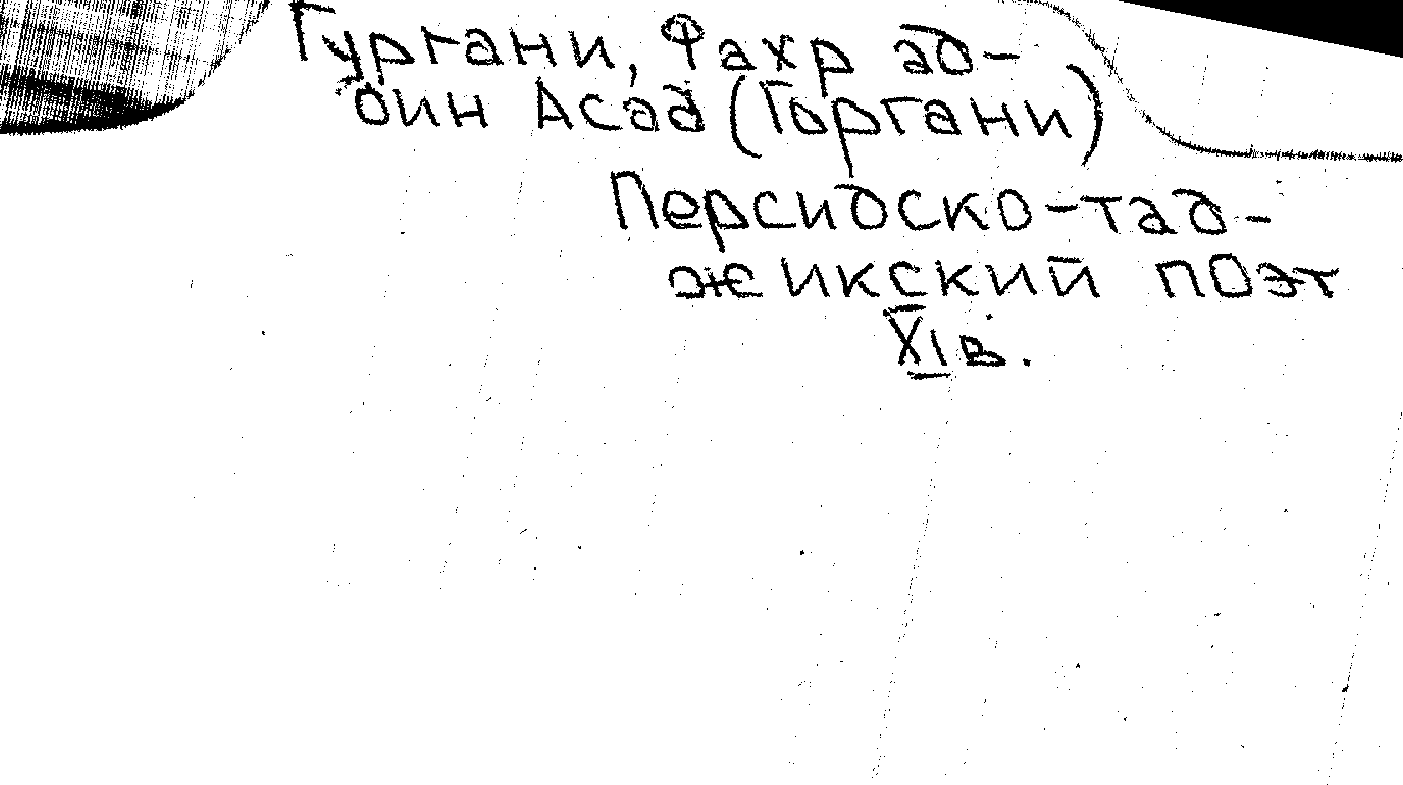 Гургани, Фахр ад-
дин Асад (Горгани)
Персидско-тад-
жикский поэт
XI в.